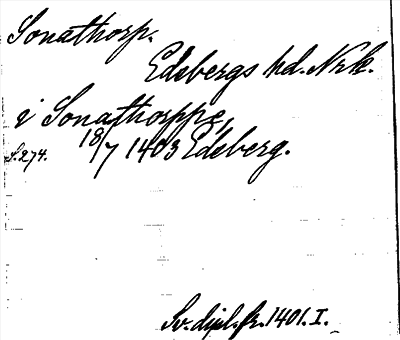 Sonathorp.
Edsbergs hd. Nrk.
i Sonathorppe,
S. 274. 18/7 1403 Edsberg.
Sv. dipl. fr. 1401. I.